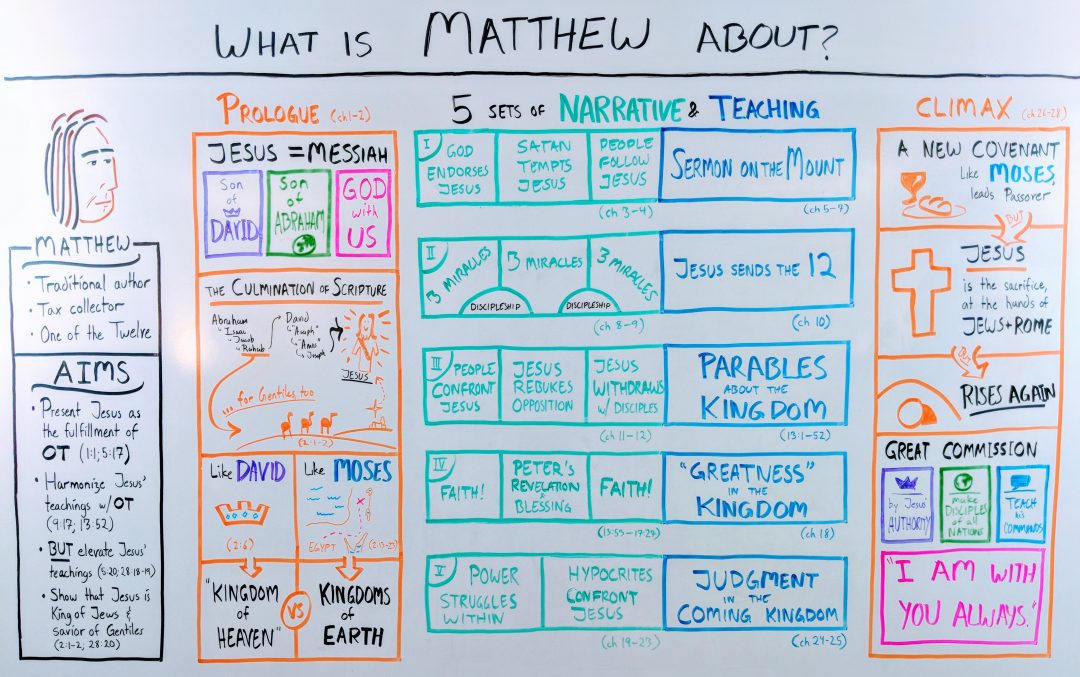 WHAT IS MATTHEW ABOUT?
MATTHEW
• Traditional author
• Tax collector
• One of the Twelve
AIMS
• Present Jesus as
the fulfillment of
OT (1:1; 5:17)
• Harmonize Jesus'
teachings w/OT
(9:17; 13:52)
• BUT elevate Jesus'
teachings (5:20; 28:18-19)
• Show that Jesus is
King of Jews &
savior of Gentiles
(2:1-2; 28:20)
PROLOGUE (ch1-2)
JESUS = MESSIAH
Son
of
DAVID
Son
of
ABRAHAM
GOD
with
US
THE CULMINATION OF SCRIPTURE
Abraham
Isaac
Jacob
Rahab
David
"Asaph"
"Amos"
Joseph
JESUS
...for Gentiles too
(2:1-2)
Like DAVID
(2:6)
Like MOSES
EGYPT
"KINGDOM
of
HEAVEN"
VS
KINGDOMS
of
EARTH
5 SETS OF NARRATIVE & TEACHING
I
GOD
ENDORSES
JESUS
SATAN
TEMPTS
JESUS
PEOPLE
FOLLOW
JESUS
(ch 3-4)
SERMON ON THE MOUNT
II
3 MIRACLES
3 MIRACLES
3 MIRACLES
DISCIPLESHIP
DISCIPLESHIP
(ch 8-9)
JESUS SENDS THE 12
(ch 10)
III
PEOPLE
CONFRONT
JESUS
JESUS
REBUKES
OPPOSITION
JESUS
WITHDRAWS
w/ DISCIPLES
(ch 11-12)
PARABLES
ABOUT THE
KINGDOM
(13:1-52)
IV
FAITH!
PETER'S
REVELATION
&
BLESSING
FAITH!
"GREATNESS"
IN THE
KINGDOM
(ch 18)
V
POWER
STRUGGLES
WITHIN
HYPOCRITES
CONFRONT
JESUS
(ch 19-23)
JUDGMENT
IN THE
COMING KINGDOM
(ch 24-25)
CLIMAX (ch 26-28)
A NEW COVENANT
Like MOSES,
leads Passover
BUT
JESUS
is the sacrifice,
at the hands of
JEWS + ROME
BUT
RISES AGAIN
GREAT COMMISSION
by Jesus'
AUTHORITY
make
DISCIPLES
of all
NATIONS
TEACH
his
COMMANDS
"I AM WITH
YOU ALWAYS."